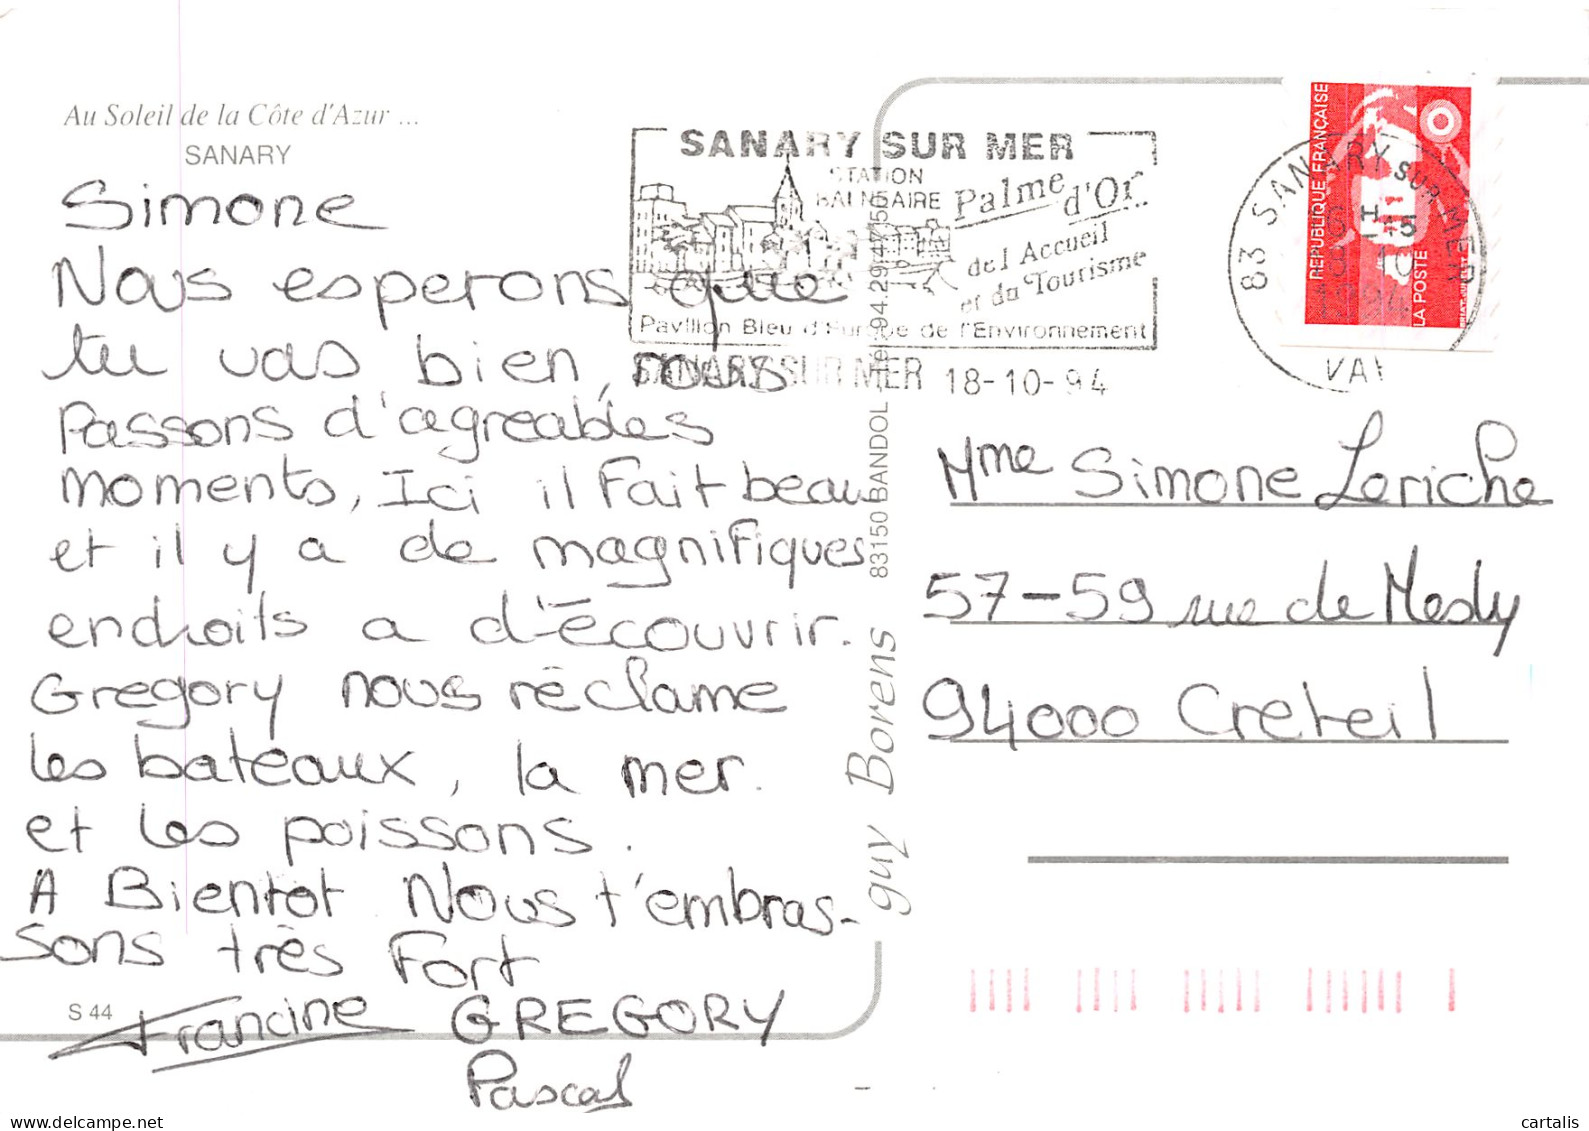 Au Soleil de la Côte d'Azur ...
SANARY
Simone
Nous esperons que
tu vas bien, nous
passons d'agreables
moments, Ici il Fait beau
et il y a de magnifiques
endroits a d'écouvrir.
Gregory nous réclame
les bateaux, la mer.
et les poissons.
A Bientot Nous t'embras-
sons très Fort
Francine GREGORY
Pascal
S 44
guy Borens
83150 BANDOL - Tél. 94.29.47.50
SANARY SUR MER
STATION
BALNEAIRE
Palme d'Or
de l Accueil
et du Tourisme
Pavillon Bleu d'Europe de l'Environnement
SANARY SUR MER 18-10-94
83 SANARY SUR MER
VAR
REPUBLIQUE FRANÇAISE
LA POSTE
Mme Simone Leriche
57-59 rue de Mesly
94000 Creteil
cartalis
www.delcampe.net